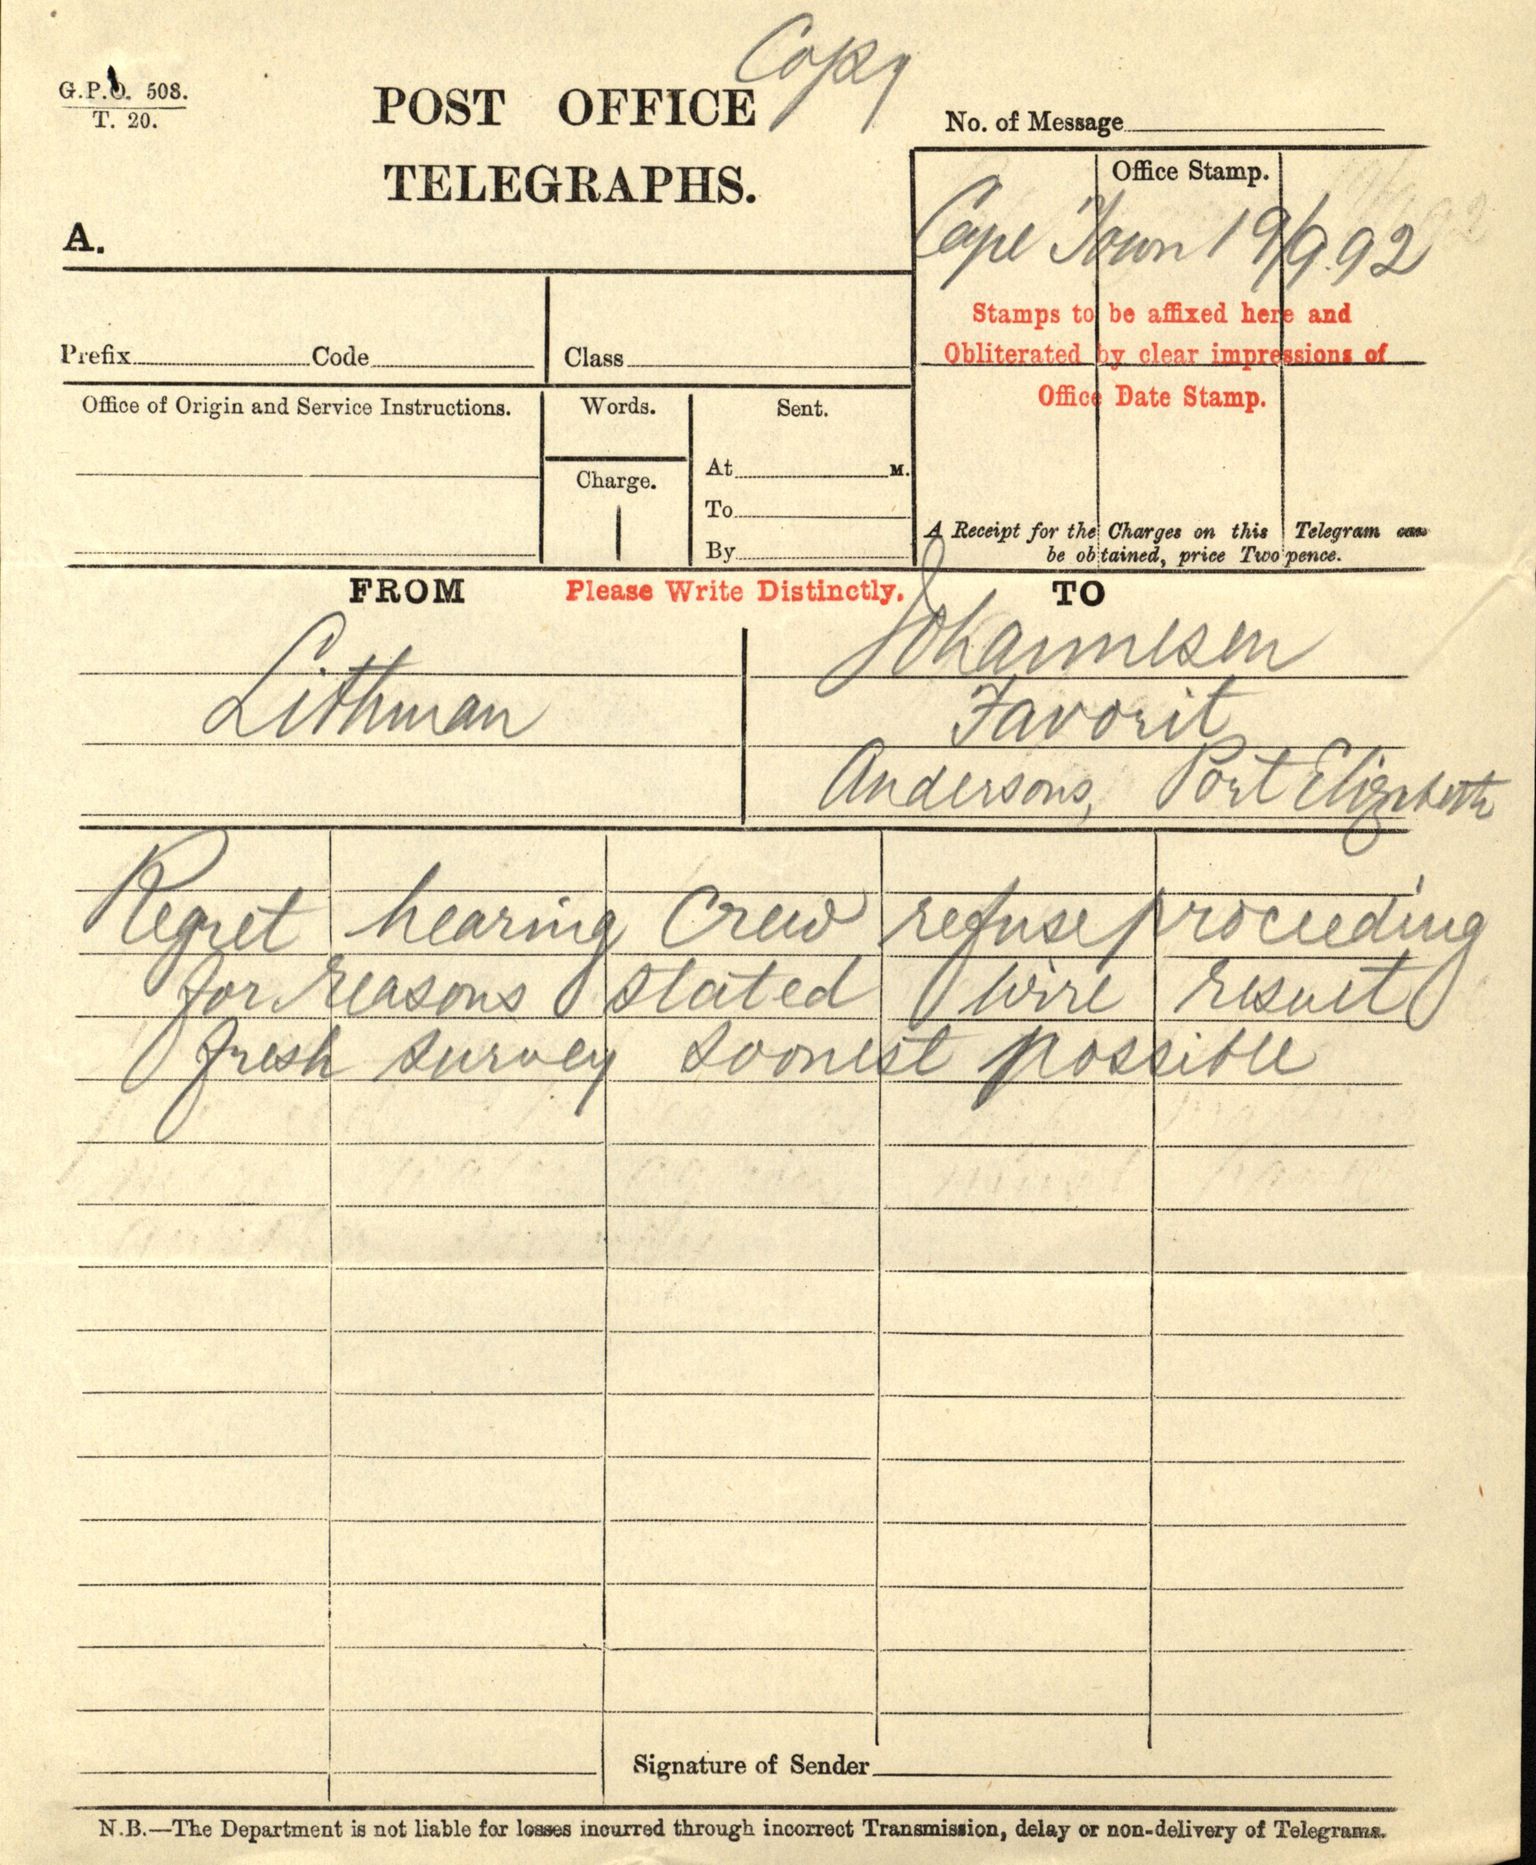 Copy
G.P.O. 508.
T. 20.
POST OFFICE
TELEGRAPHS.
A.
No. of Message
Office Stamp.
Cape Town 19/9.92
Stamps to be affixed here and
Obliterated by clear impressions of
Office Date Stamp.
Prefix Code Class
Office of Origin and Service Instructions.
Words.
Charge.
Sent.
At M.
To
By
A Receipt for the Charges on this Telegram can
be obtained, price Twopence.
FROM Please Write Distinctly. TO
Lithman
Johannesen
Favorit
Andersons, Port Elizabeth
Regret hearing Crew refuse proceeding
for reasons stated wire result
fresh survey soonest possible
Signature of Sender
N.B.—The Department is not liable for losses incurred through incorrect Transmission, delay or non-delivery of Telegrams.